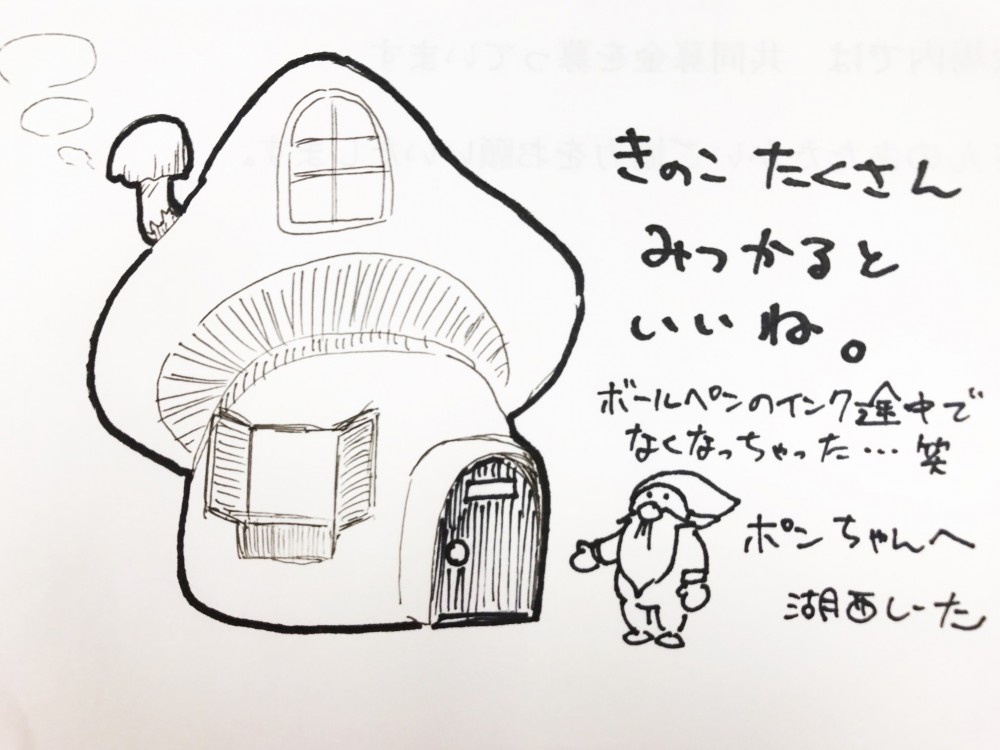 きのこ たくさん
みつかると
いいね。
ボールペンのインク途中で
なくなっちゃった…笑
ポンちゃんへ
湖西しーた